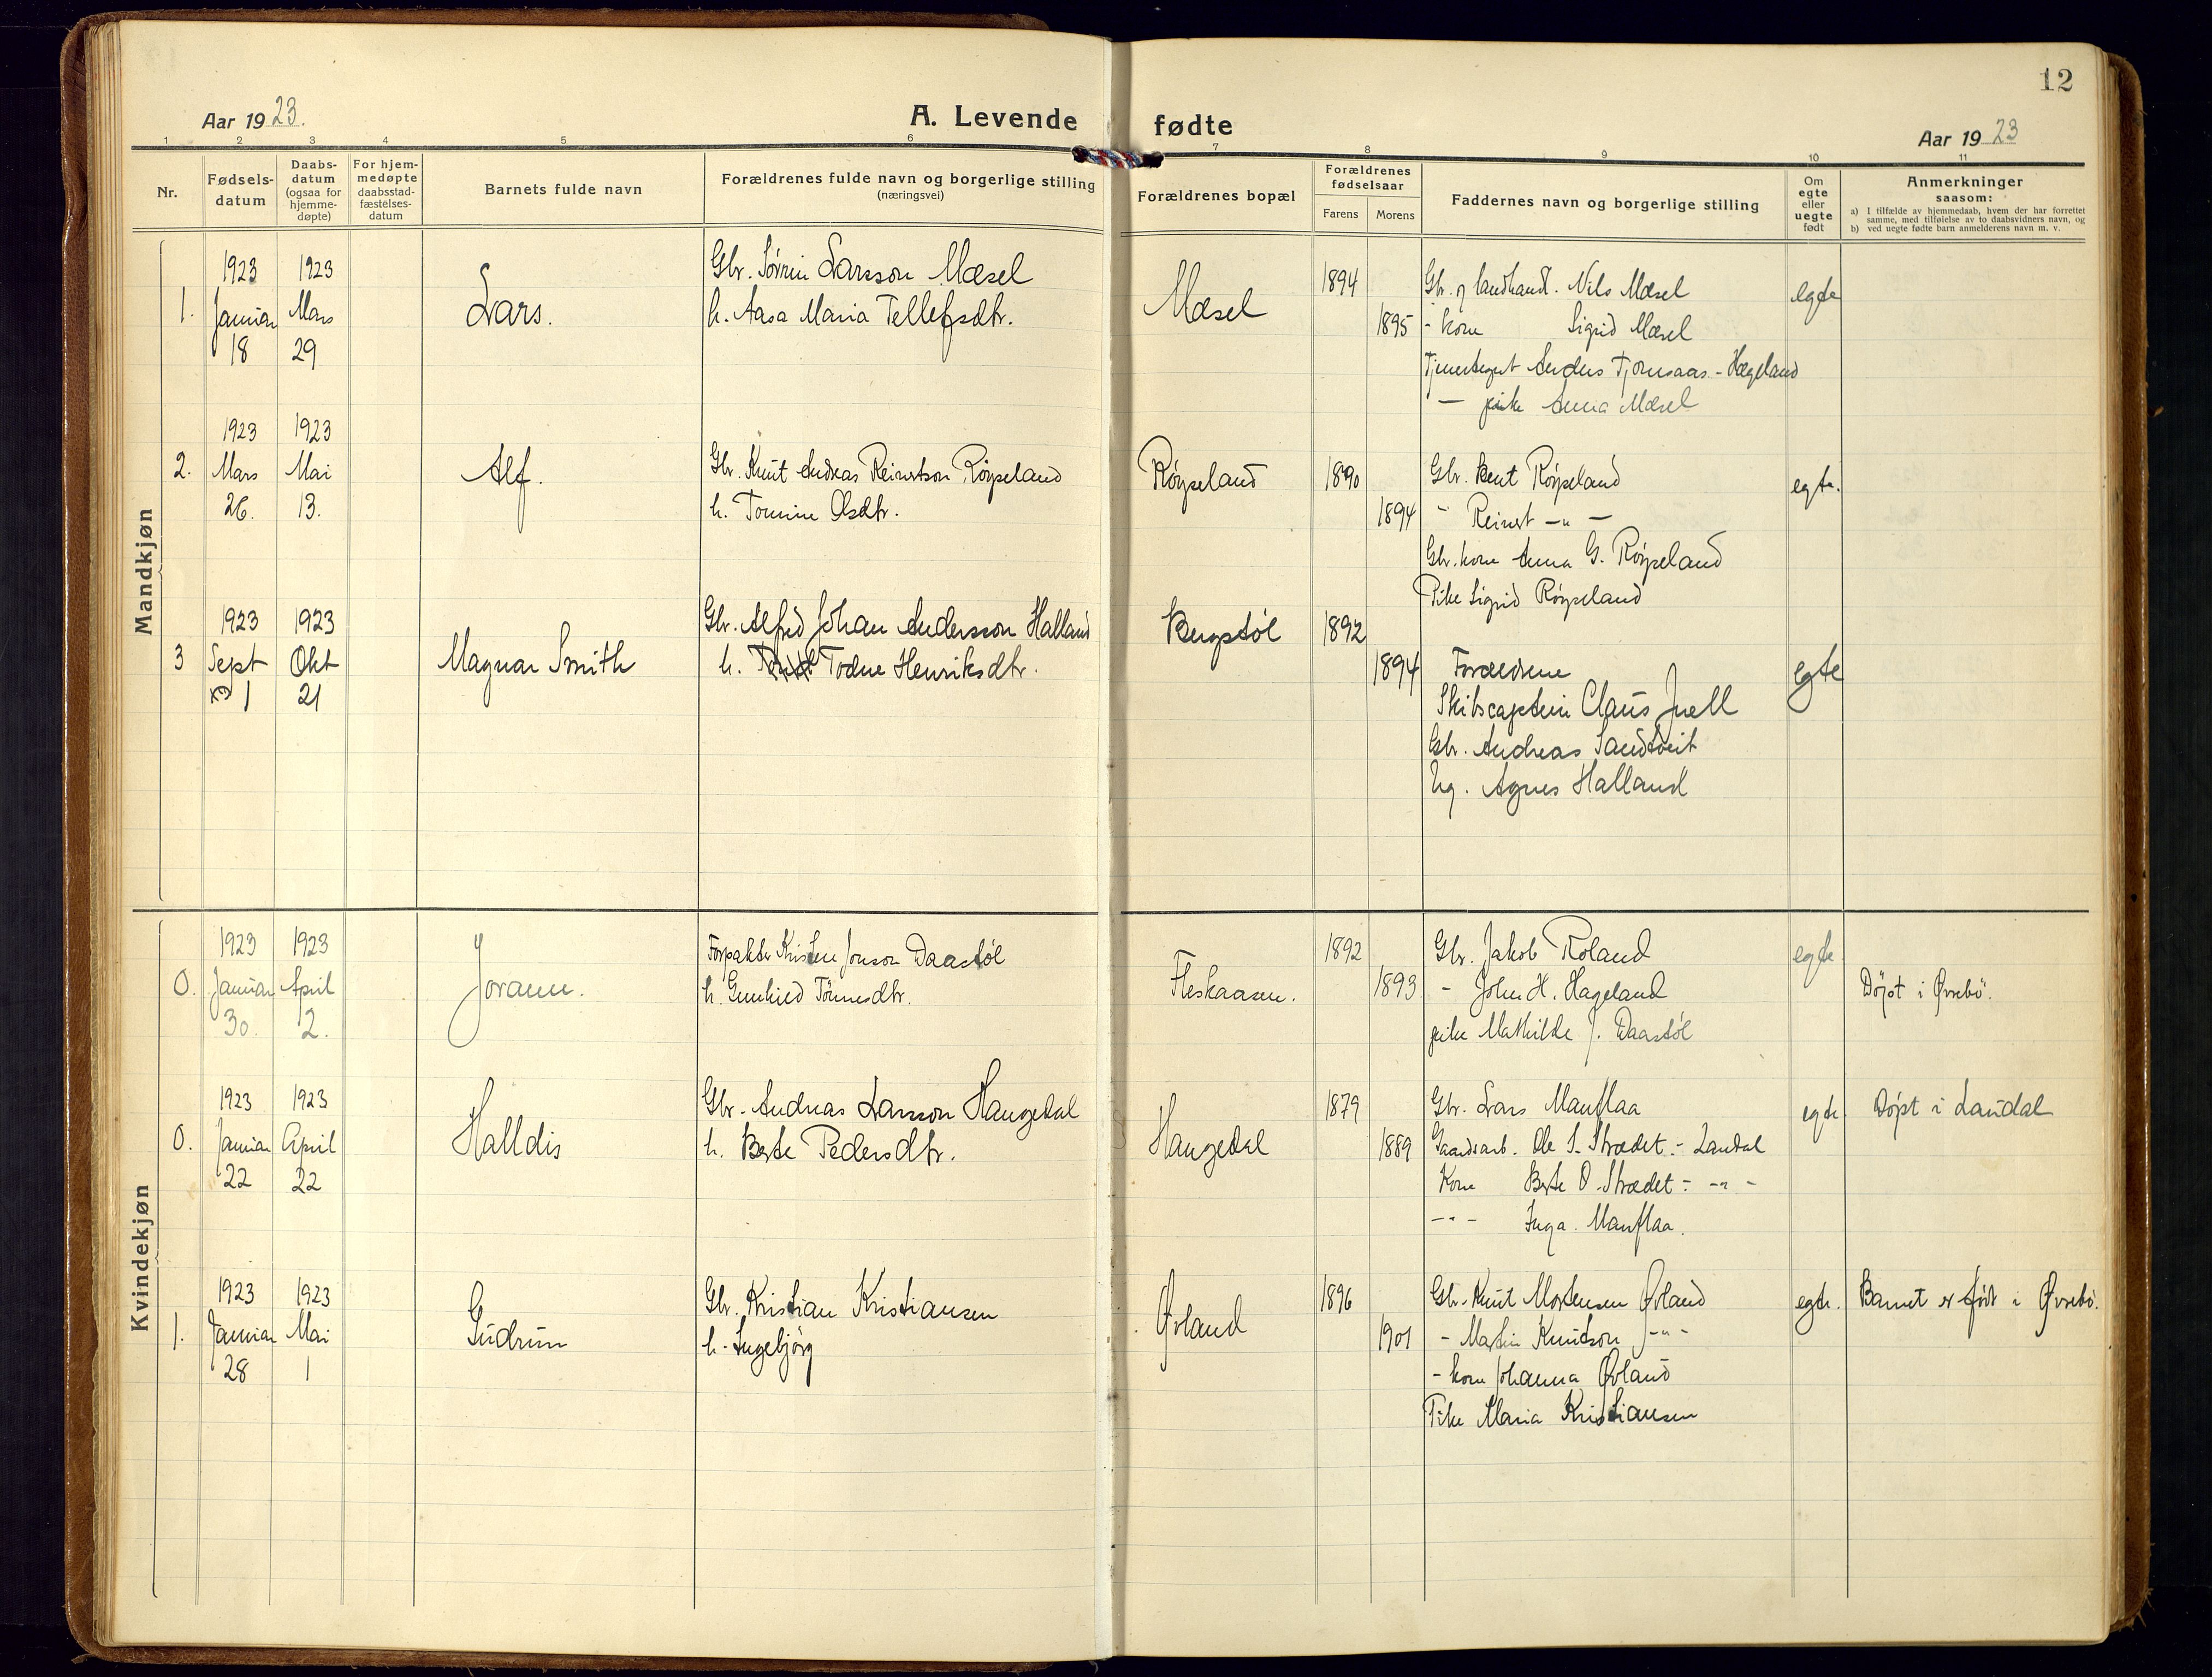 12
Aar 1923.
A. Levende fødte
Aar 1923
1 2 3 4 5 6 7 8 9 10 11
Nr.
Fødsels-
datum
Daabs-
datum
(ogsaa for
hjemme-
døpte)
For hjem-
medøpte
daabsstad-
fæstelses-
datum
Barnets fulde navn
Forældrenes fulde navn og borgerlige stilling
(næringsvei)
Forældrenes bopæl
Forældrenes
fødselsaar
Farens Morens
Faddernes navn og borgerlige stilling
Om
egte
eller
uegte
født
Anmerkninger
saasom:
a) I tilfælde av hjemmedaab, hvem der har forrettet
samme, med tilføielse av to daabsvidners navn, og
b) ved uegte fødte barn anmelderens navn m. v.
Mandkjøn
1.
1923
Januar
18
1923
Mars
29
Lars.
Gbr. Sørrin Larsson Mæsel
h. Aasa Maria Tellefsdtr.
Mæsel
1894
1895
Gbr. og landhandl. Nils Mæsel
- kone Sigrid Mæsel
Tjenestegut Anders Tjomsaas - Hægeland
— pike Anna Mæsel
egte
2.
1923
Mars
26.
1923
Mai
13.
Alf.
Gbr. Knut Andreas Reinertson Røyseland
h. Tomine Olsdtr.
Røyseland
1890
1894
Gbr. Bent Røyseland
- Reinert -"-
Gbr. kone Anna G. Røyseland
Pike Sigrid Røyseland
egte.
3
1923
Sept
1
1923
Okt
21
Magnar Smith
Gbr. Alfred Johan Andersson Halland
h. Todne Henriksdtr.
Bergstøl
1892
1894
Forældrene
Skibscaptein Claus Juell
Gbr. Andreas Sandtveit
Ug. Agnes Halland
egte
Kvindekjøn
0.
1923
Januar
30.
1923
April
2.
Jorunn.
Forpakter Kristen Jonson Daastøl
h. Gunhild Tønnesdtr.
Fleskaasen.
1892
1893
Gbr. Jakob Roland
- John H. Hageland
pike Mathilde J. Daastøl
egte
Døpt i Øvrebø.
0.
1923
Januar
22
1923
April
22
Halldis
Gbr. Andreas Larsson Haugedal
h. Berte Pedersdtr.
Haugedal
1879
1889
Gbr. Lars Manflaa
Gaardsarb. Ole S. Strædet - Laudal
Kone Berte O. Strædet - -"-
-"- Inga Manflaa.
egte
Døpt i Laudal
1.
1923
Januar
28
1923
Mai
1
Gudrun
Gbr. Kristian Kristiansen
h. Ingebjørg
Øvland
1896
1901
Gbr. Knut Mortensen Øvland
- Martin Knutson -"-
- kone Johanna Øvland
Pike Maria Kristiansen
egte.
Barnet er født i Øvrebø.